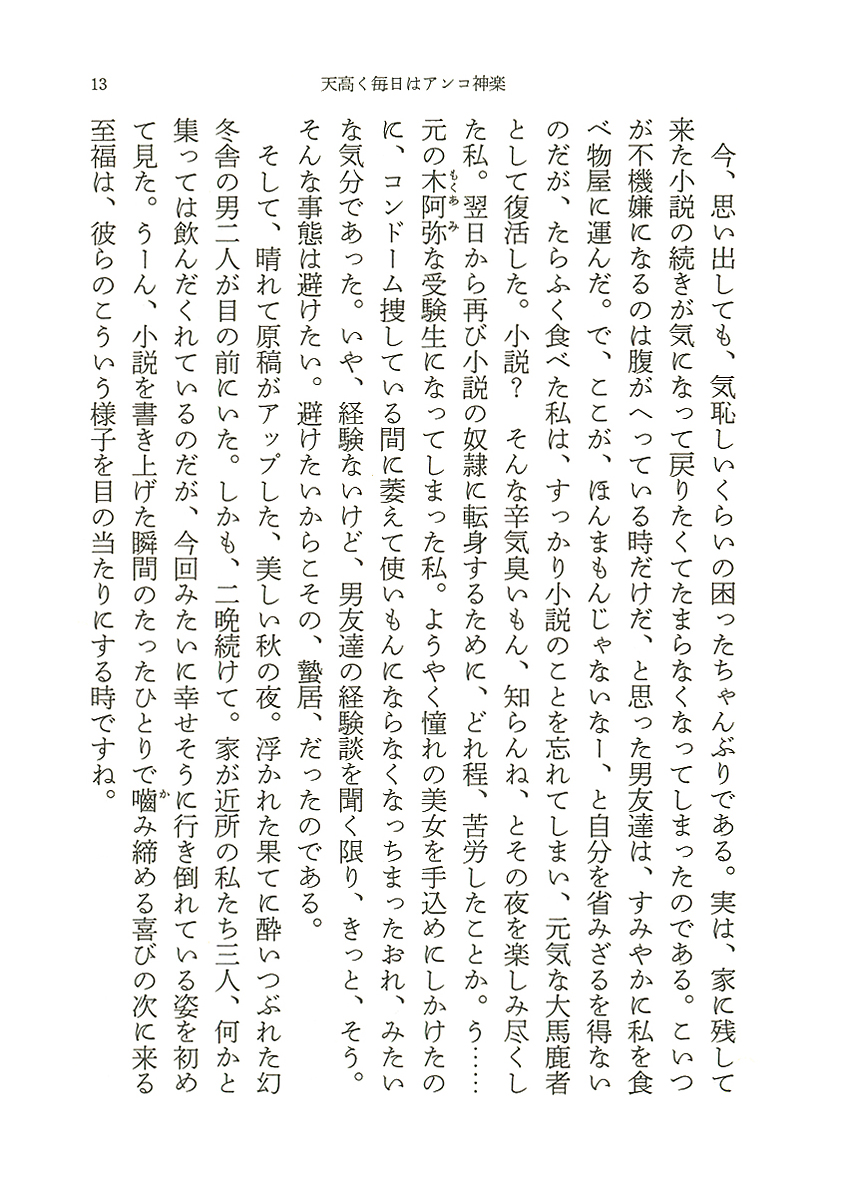 13
天高く毎日はアンコ神楽
今、思い出しても、気恥しいくらいの困ったちゃんぶりである。実は、家に残して
来た小説の続きが気になって戻りたくてたまらなくなってしまったのである。こいつ
が不機嫌になるのは腹がへっている時だけだ、と思った男友達は、すみやかに私を食
べ物屋に運んだ。で、ここが、ほんまもんじゃないなー、と自分を省みざるを得ない
のだが、たらふく食べた私は、すっかり小説のことを忘れてしまい、元気な大馬鹿者
として復活した。小説？　そんな辛気臭いもん、知らんね、とその夜を楽しみ尽くし
た私。翌日から再び小説の奴隷に転身するために、どれ程、苦労したことか。う……
元の木阿弥な受験生になってしまった私。ようやく憧れの美女を手込めにしかけたの
に、コンドーム捜している間に萎えて使いもんにならなくなっちまったおれ、みたい
な気分であった。いや、経験ないけど、男友達の経験談を聞く限り、きっと、そう。
そんな事態は避けたい。避けたいからこその、蟄居、だったのである。
そして、晴れて原稿がアップした、美しい秋の夜。浮かれた果てに酔いつぶれた幻
冬舎の男二人が目の前にいた。しかも、二晩続けて。家が近所の私たち三人、何かと
集っては飲んだくれているのだが、今回みたいに幸せそうに行き倒れている姿を初め
て見た。うーん、小説を書き上げた瞬間のたったひとりで嚙み締める喜びの次に来る
至福は、彼らのこういう様子を目の当たりにする時ですね。